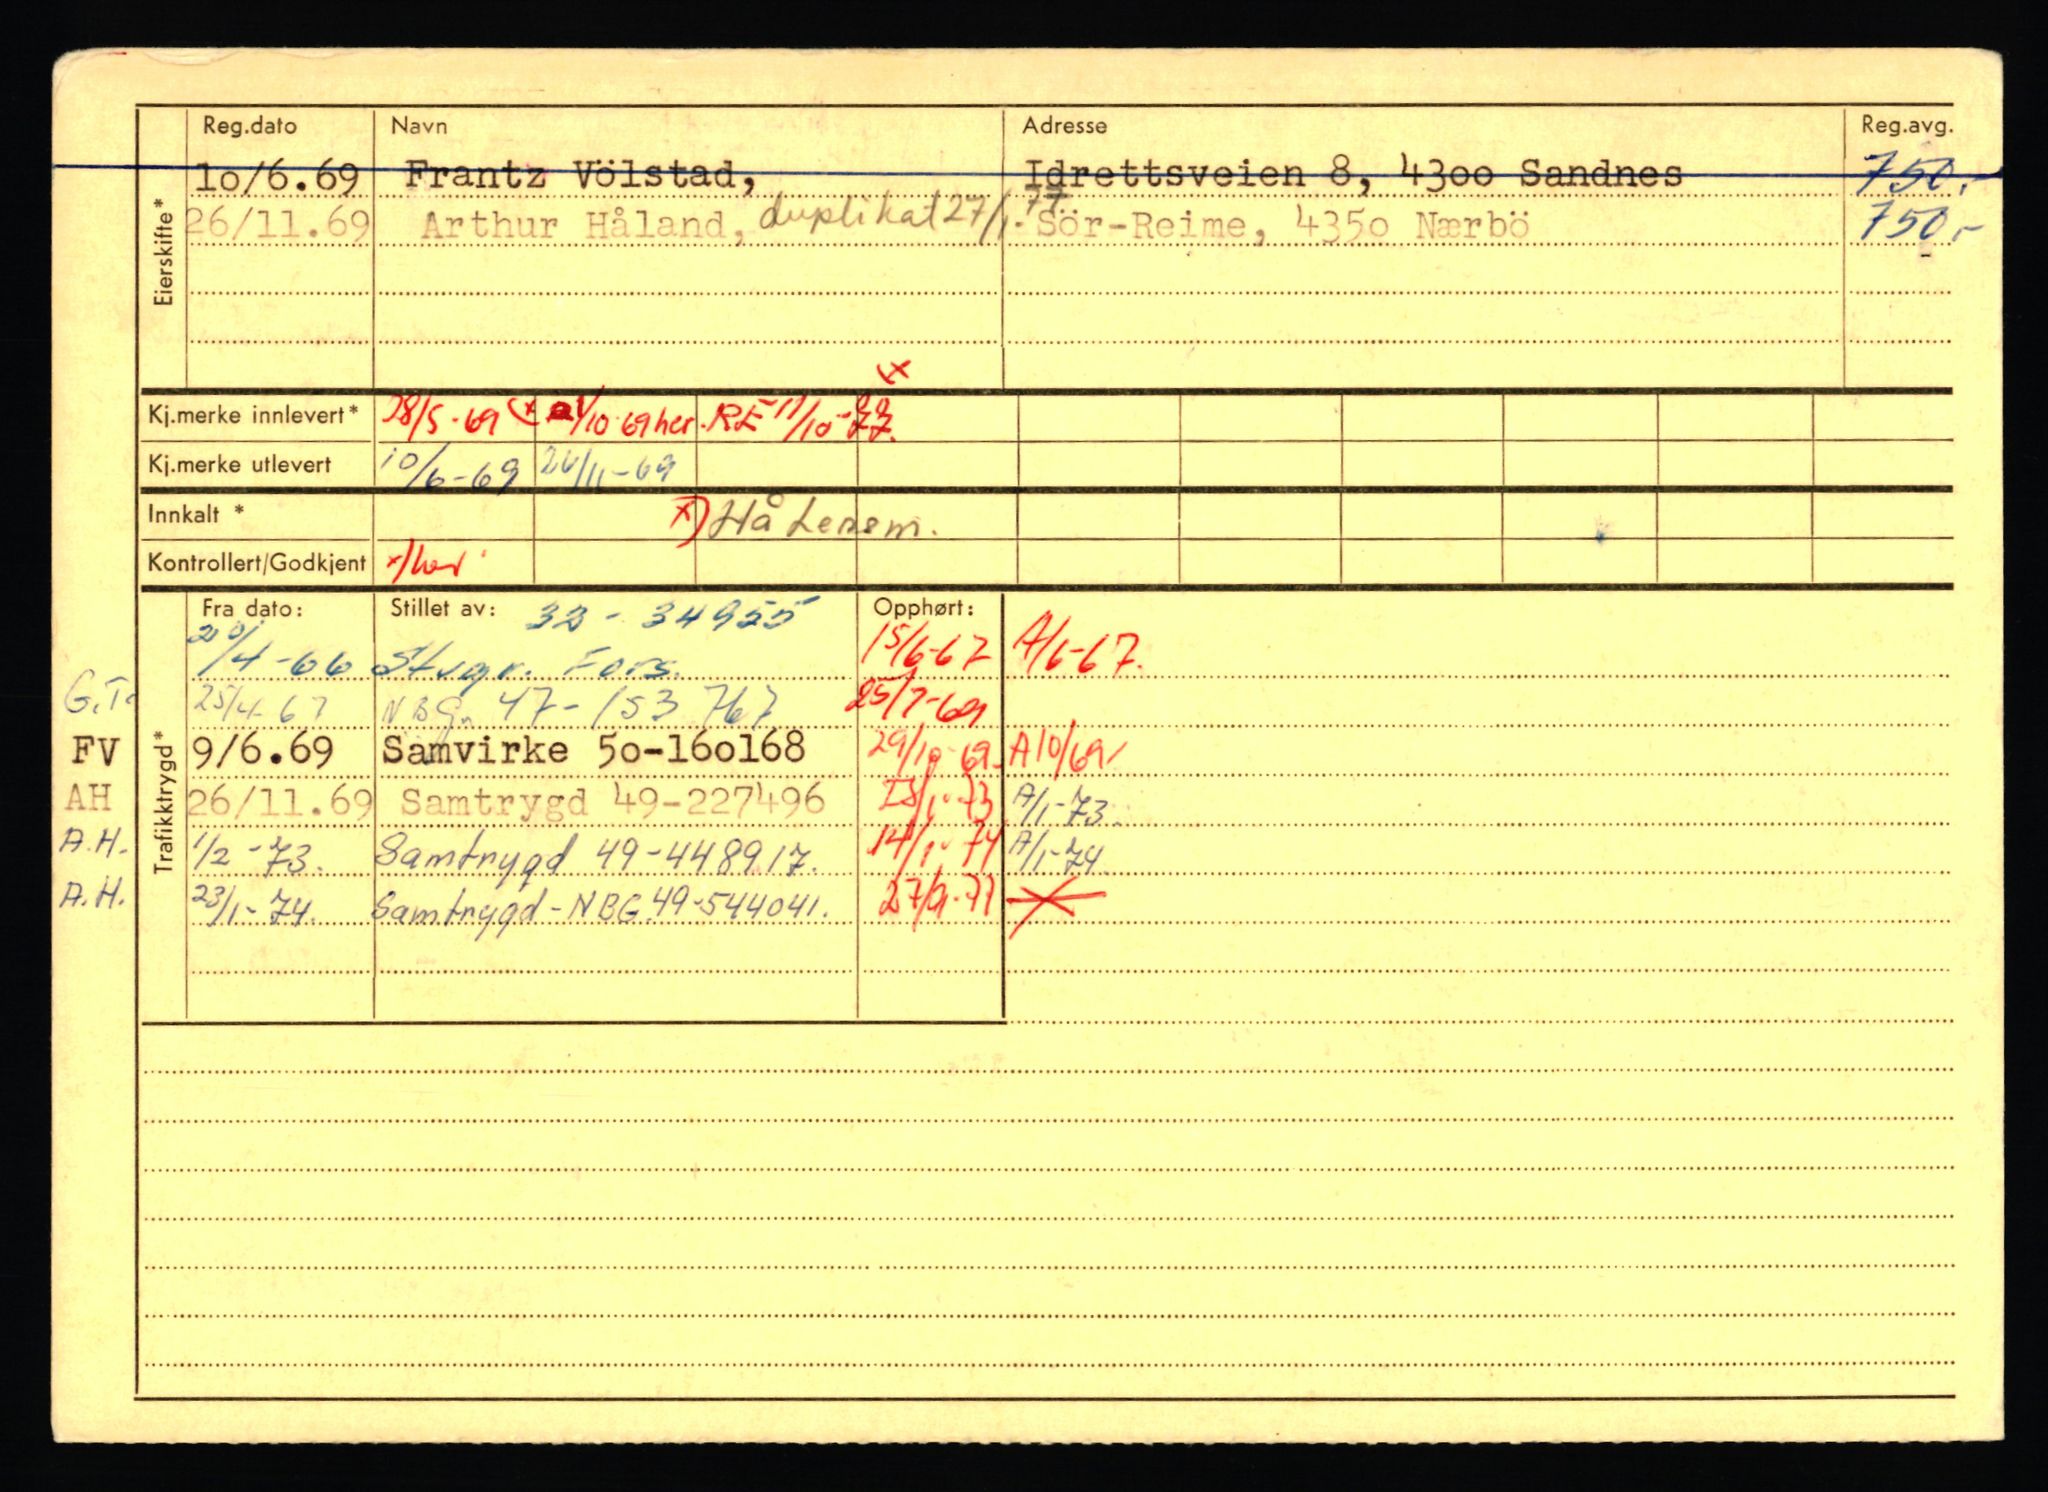 Reg.dato Navn Adresse Reg.avg.
10/6.69 Frantz Völstad, Idrettsveien 8, 4300 Sandnes 750.-
26/11.69 Arthur Håland, duplikat 27/1.77 Sör-Reime, 4350 Nærbö 750,-
Eierskifte*
Kj.merke innlevert* 28/5-69 (x 21/10 69 her. RE 11/10-77. x
Kj.merke utlevert 10/6-69 26/11-69
Innkalt * x) Hå Lensm.
Kontrollert/Godkjent x/her
Trafikktrygd*
Fra dato: Stillet av: 32-34955 Opphørt:
20/4-66 Stvgr. Fors. 15/6-67 A/6-67.
G.T. 25/4-67 NBG. 47-153 767 25/7-69
FV 9/6.69 Samvirke 50-160168 29/10-69 A10/69
AH 26/11.69 Samtrygd 49-227496 18/1-73 A/1-73.
A.H. 1/2-73. Samtrygd 49-448917. 14/1-74 A/1-74.
A.H. 23/1-74. Samtrygd-NBG.49-544041. 27/9-77